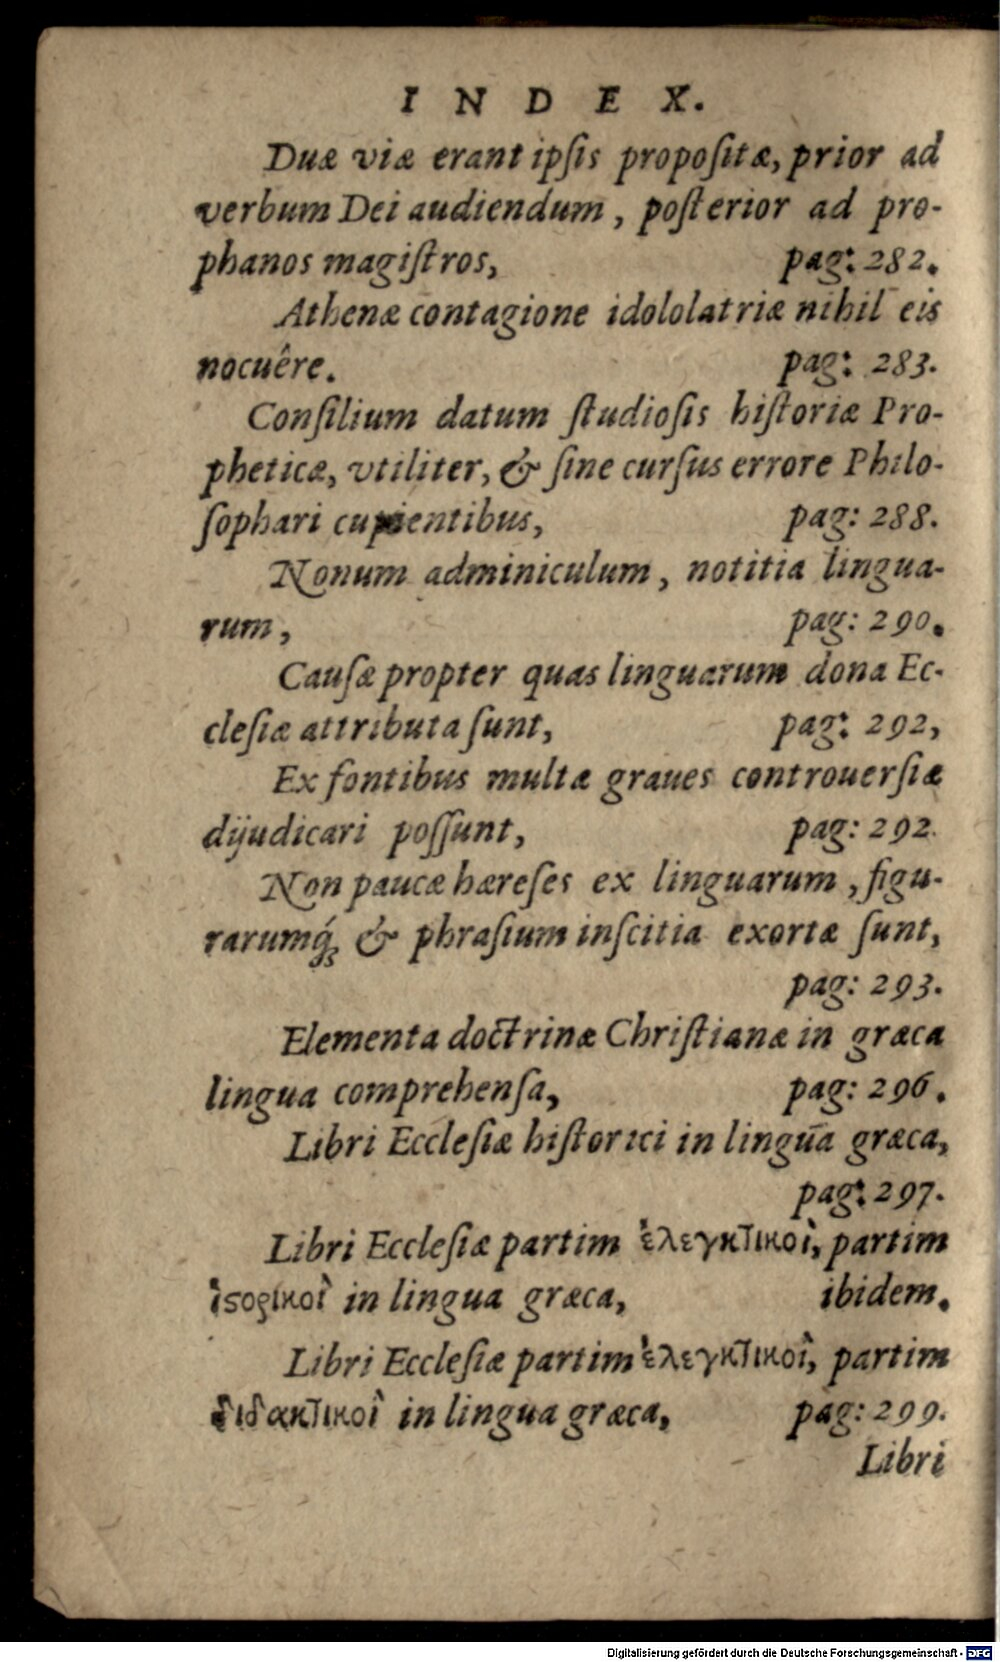 INDEX.
Duæ viæ erant ipſis propoſitæ, prior ad
verbum Dei audiendum, poſterior ad pro-
phanos magiſtros, pag: 282.
Athenæ contagione idololatriæ nihil eis
nocuêre. pag: 283.
Conſilium datum ſtudioſis hiſtoriæ Pro-
pheticæ, vtiliter, & ſine curſus errore Philo-
ſophari cupientibus, pag: 288.
Nonum adminiculum, notitia lingua-
rum, pag: 290.
Cauſæ propter quas linguarum dona Ec-
cleſiæ attributa ſunt, pag: 292,
Ex fontibus multæ graues controuerſiæ
dijudicari poſſunt, pag: 292.
Non paucæ hæreſes ex linguarum, figu-
rarumq́; & phraſium inſcitia exortæ ſunt,
pag: 293.
Elementa doctrinæ Chriſtianæ in græca
lingua comprehenſa, pag: 296.
Libri Eccleſiæ hiſtorici in lingua græca,
pag: 297.
Libri Eccleſiæ partim ἐλεγκτικοὶ, partim
ἱϛορικοὶ in lingua græca, ibidem.
Libri Eccleſiæ partim ἐλεγκτικοὶ, partim
διδακτικοὶ in lingua græca, pag: 299.
Libri
Digitalisierung gefördert durch die Deutsche Forschungsgemeinschaft - DFG